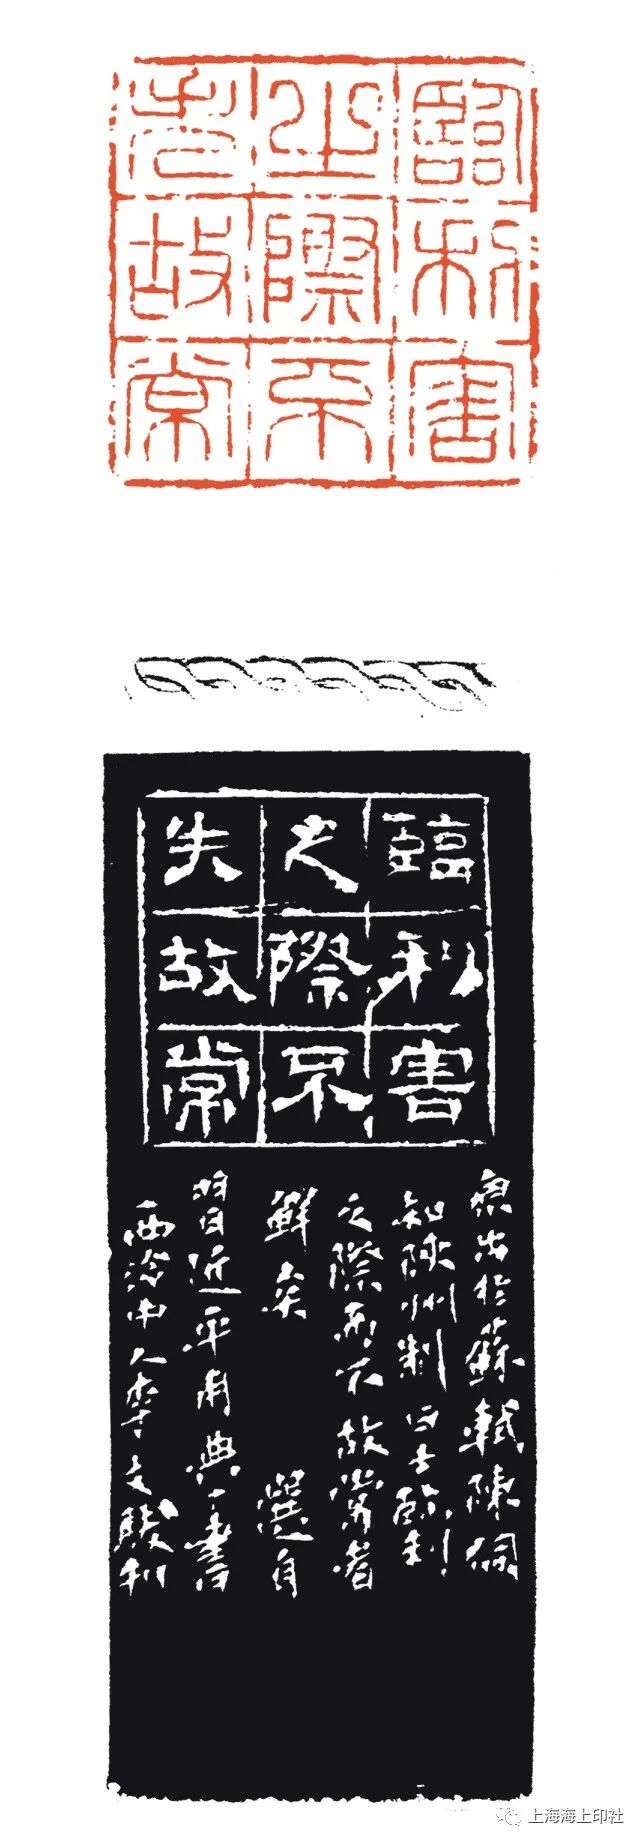 臨利害
之際不
失故常
臨利害
之際不
失故常
出於蘇軾陳侗
知陝州制曰士臨利
之際而不故常者
鮮矣 選自
習近平用典一書
西泠中人李文駿刻
上海海上印社